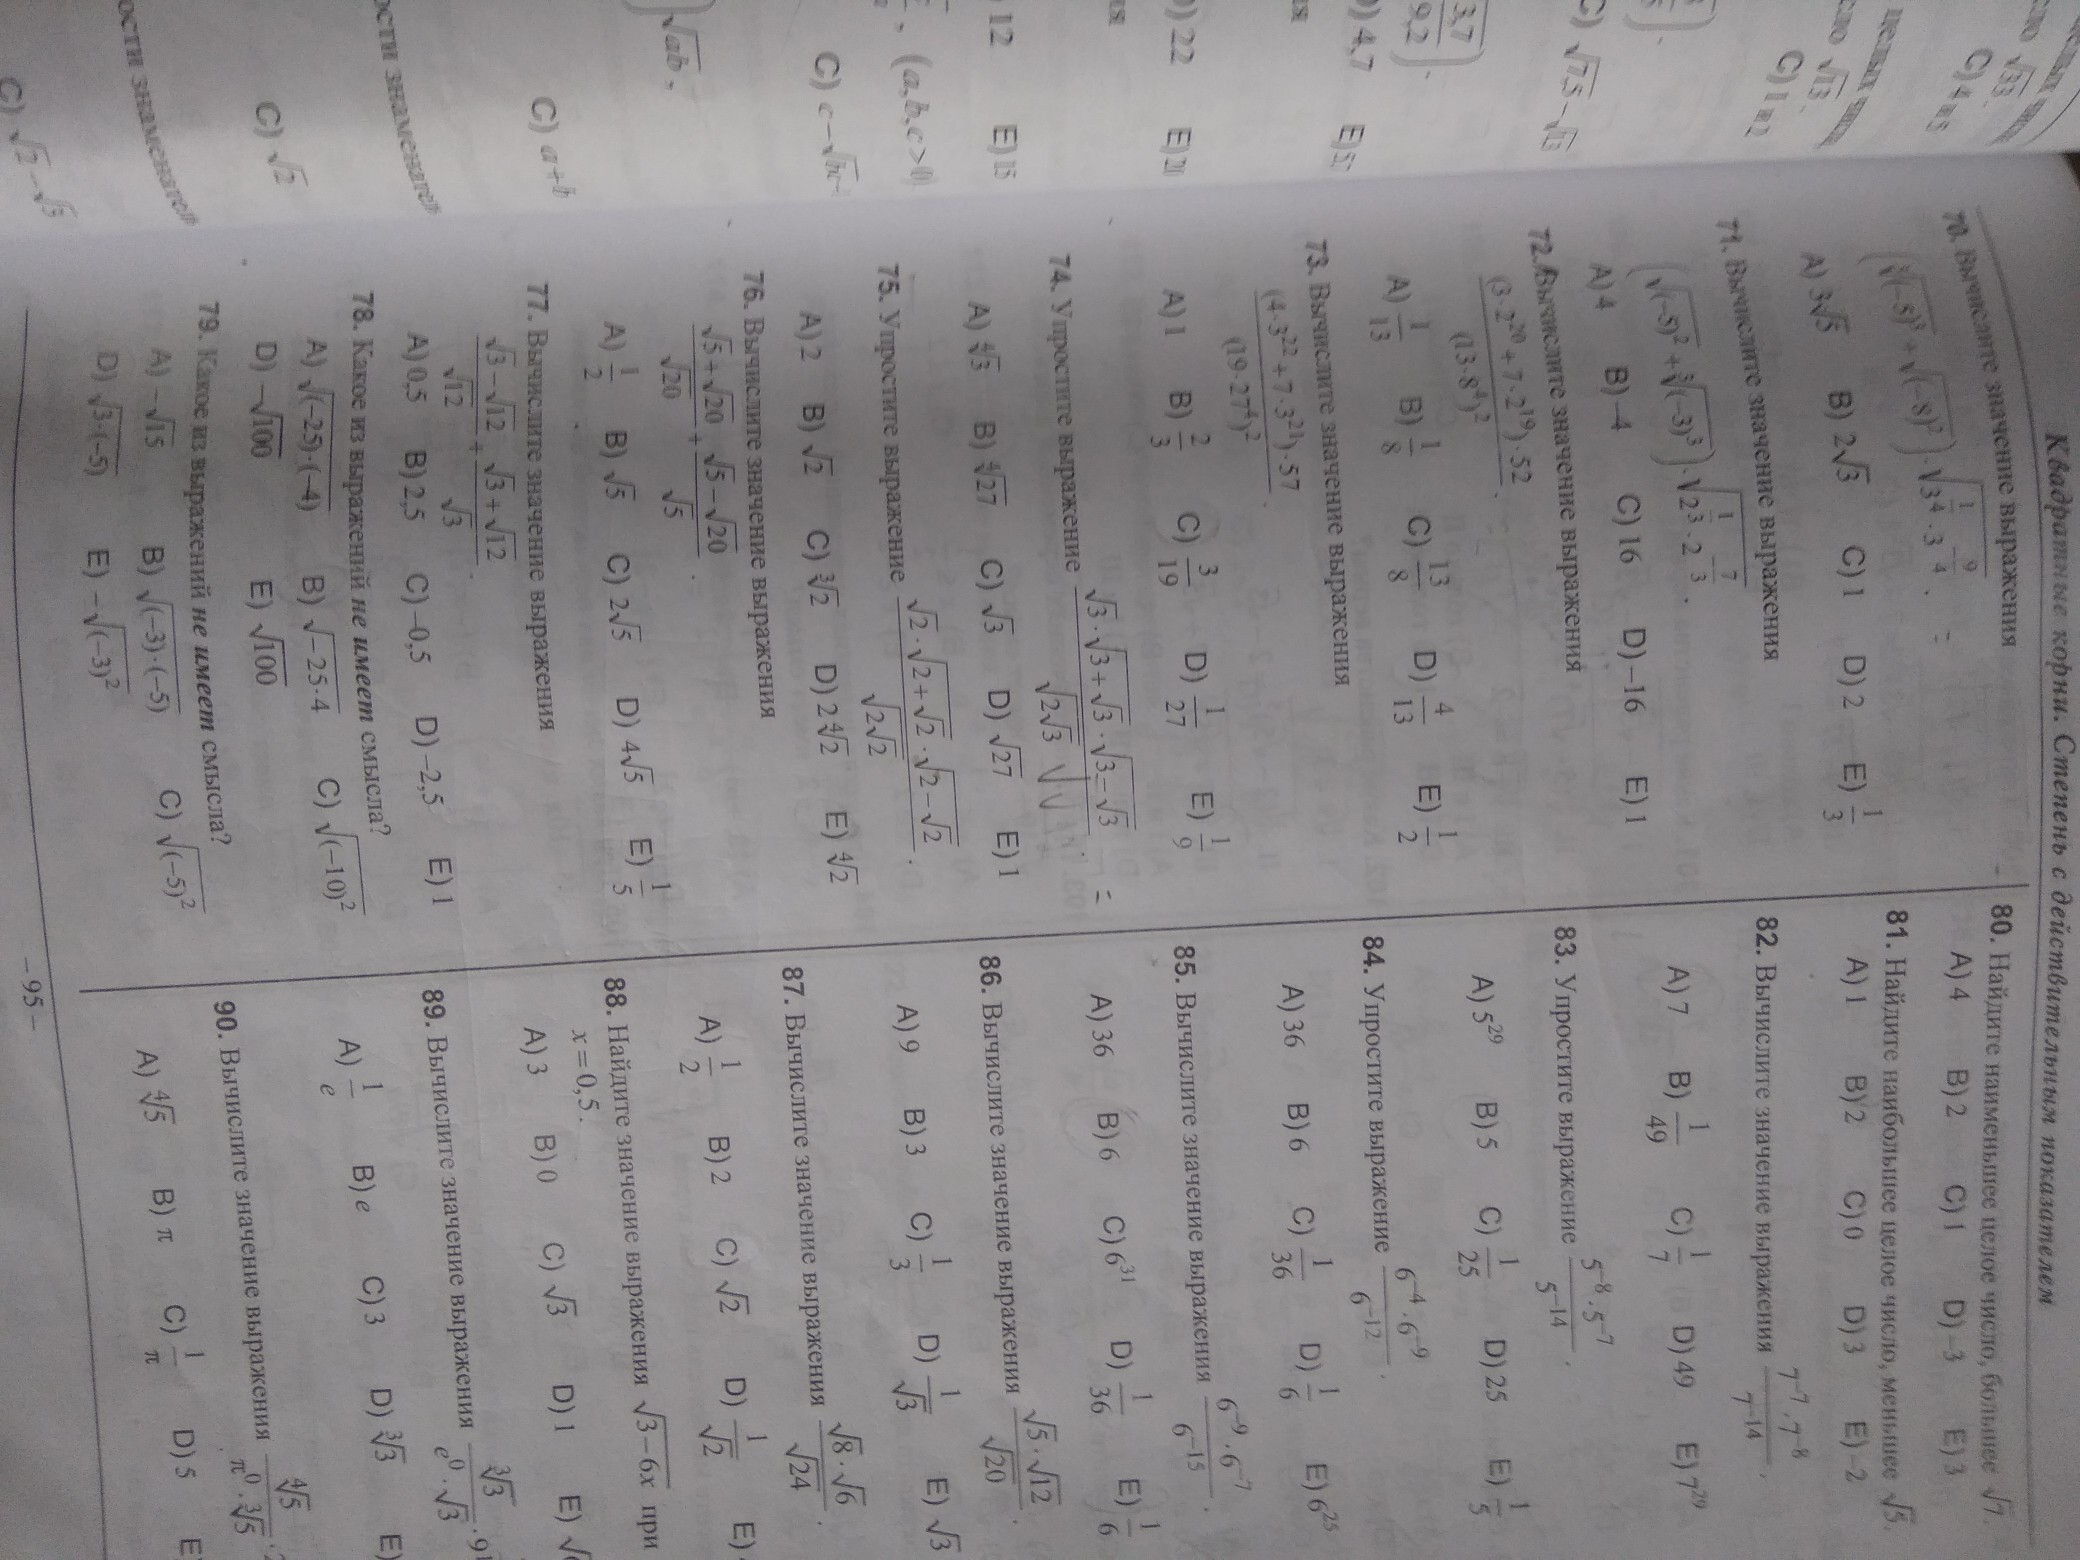 Квадратные корни. Степень с действительным показателем
70. Вычислите значение выражения
(∛(-5)³ + √(-8)²) · √(3^(1/4) · 3^(-9/4)). =
A) 3√5 B) 2√3 C) 1 D) 2 E) 1/3
71. Вычислите значение выражения
(√(-5)² + ∛(-3)³) · √(2^(1/3) · 2^(-7/3)).
A) 4 B) -4 C) 16 D) -16 E) 1
72. Вычислите значение выражения
((3·2²⁰ + 7·2¹⁹)·52)/(13·8⁴)².
A) 1/13 B) 1/8 C) 13/8 D) 4/13 E) 1/2
73. Вычислите значение выражения
((4·3²² + 7·3²¹)·57)/(19·27⁴)².
A) 1 B) 2/3 C) 3/19 D) 1/27 E) 1/9
74. Упростите выражение (√3·√(3+√3)·√(3-√3))/√(2√3). =
A) ∜3 B) ∜27 C) √3 D) √27 E) 1
75. Упростите выражение (√2·√(2+√2)·√(2-√2))/√(2√2).
A) 2 B) √2 C) ∛2 D) 2∜2 E) ∜2
76. Вычислите значение выражения
(√5+√20)/√20 + (√5-√20)/√5.
A) 1/2 B) √5 C) 2√5 D) 4√5 E) 1/5
77. Вычислите значение выражения
(√3-√12)/√12 + (√3+√12)/√3.
A) 0,5 B) 2,5 C) -0,5 D) -2,5 E) 1
78. Какое из выражений не имеет смысла?
A) √((-25)·(-4)) B) √(-25·4) C) √(-10)²
D) -√100 E) √100
79. Какое из выражений не имеет смысла?
A) -√15 B) √((-3)·(-5)) C) √(-5)²
D) √(3·(-5)) E) -√(-3)²
80. Найдите наименьшее целое число, большее √7.
A) 4 B) 2 C) 1 D) -3 E) 3
81. Найдите наибольшее целое число, меньшее √5.
A) 1 B) 2 C) 0 D) 3 E) -2
82. Вычислите значение выражения (7⁻⁷·7⁻⁸)/7⁻¹⁴.
A) 7 B) 1/49 C) 1/7 D) 49 E) 7²⁹
83. Упростите выражение (5⁻⁸·5⁻⁷)/5⁻¹⁴.
A) 5²⁹ B) 5 C) 1/25 D) 25 E) 1/5
84. Упростите выражение (6⁻⁴·6⁻⁹)/6⁻¹².
A) 36 B) 6 C) 1/36 D) 1/6 E) 6²⁵
85. Вычислите значение выражения (6⁻⁹·6⁻⁷)/6⁻¹⁵.
A) 36 B) 6 C) 6³¹ D) 1/36 E) 1/6
86. Вычислите значение выражения (√5·√12)/√20.
A) 9 B) 3 C) 1/3 D) 1/√3 E) √3
87. Вычислите значение выражения (√8·√6)/√24.
A) 1/2 B) 2 C) √2 D) 1/√2 E)
88. Найдите значение выражения √(3-6x) при
x = 0,5.
A) 3 B) 0 C) √3 D) 1 E) √
89. Вычислите значение выражения ∛3/(e⁰·√3)
A) 1/e B) e C) 3 D) ∛3 E)
90. Вычислите значение выражения ∜5/(π⁰·∛5)
A) ∜5 B) π C) 1/π D) 5 E)
– 95 –
C) 4 и 5
√13
C) 1 и 2
C) √7,5 – √
E)
D) 4,7
D) 22
12 E) 15
, (a,b,c>0)
C)
√ab,
C) a+b
ости знаменателя
C) √2
ости знаменателя
C) √2 – √3